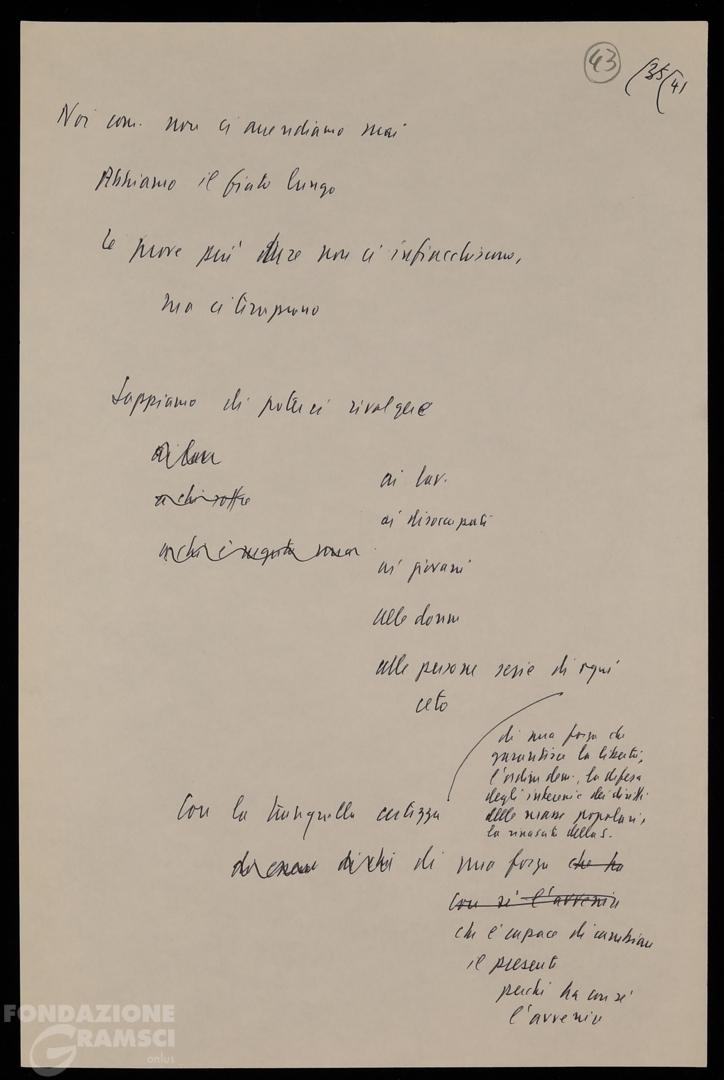 43 (35 (41
Noi com. non ci arrendiamo mai
Abbiamo il fiato lungo
Le prove più dure non ci infiacchiscono,
ma ci temprano
Sappiamo di poterci rivolgere
ai lav.
a chi soffre
ai lav.
ai disoccupati
ai giovani
alle donne
alle persone serie di ogni
ceto
di una forza che
garantisce la libertà,
l'ordine dem., la difesa
degli interessi e dei diritti
delle masse popolari,
la rinascita della s.
Con la tranquilla certezza
di una forza che ha
con sé l'avvenire
che è capace di cambiare
il presente
perché ha con sé
l'avvenire
FONDAZIONE
GRAMSCI
onlus